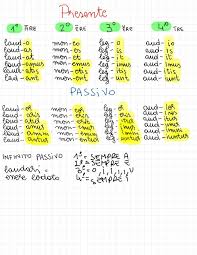 Presente
1° ARE 2° ERE 3° ERE 4° IRE
laud-o mon-eo leg-o aud-io
laud-as mon-es leg-is aud-is
laud-at mon-et leg-it aud-it
laud-amus mon-emus leg-imus aud-imus
laud-atis mon-etis leg-itis aud-itis
laud-ant mon-ent leg-unt aud-iunt
PASSIVO
laud-or mon-eor leg-or aud-ior
laud-aris mon-eris leg-eris aud-iris
laud-atur mon-etur leg-itur aud-itur
laud-amur mon-emur leg-imur aud-imur
laud-amini mon-emini leg-imini aud-imini
laud-antur mon-entur leg-untur aud-iuntur
INFINITO PASSIVO 1°= SEMPRE A
2°= SEMPRE E
laudari= 3°=
essere lodato 4°= SEMPRE I